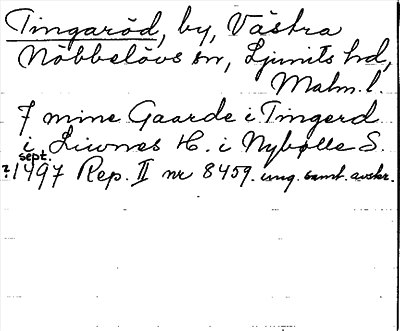 Tingaröd, by, Västra
Nöbbelövs sn, Ljunits hd,
Malm. l.
7 mine Gaarde i Tingerd
i Liwnes H. i Nybølle S.
sept.
? 1497 Rep. II nr 8459. ung. samt. avskr.